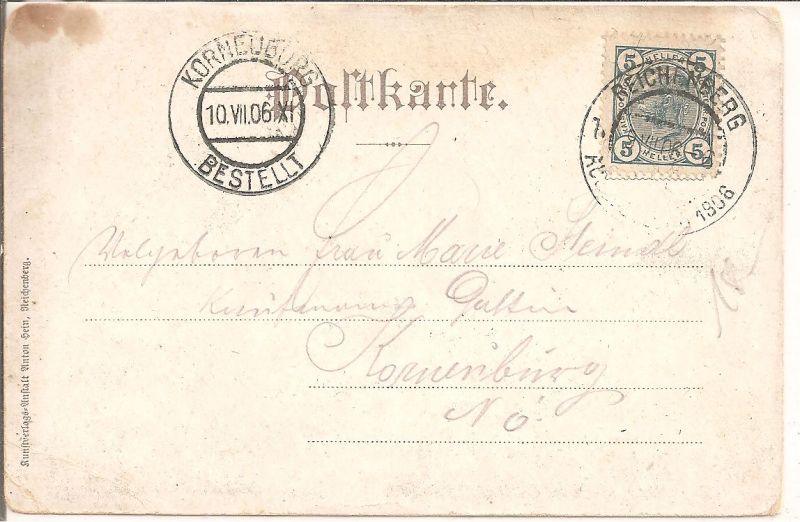 KORNEUBURG
10.VII.06 XI
BESTELLT
Postkarte.
5 HELLER 5
5 HELLER 5
REICHENBERG
1906
Wolgeboren Frau Marie Steindl
Gattin
Korneuburg
N.Ö.
Kunstverlags-Anstalt Anton Hein, Reichenberg.